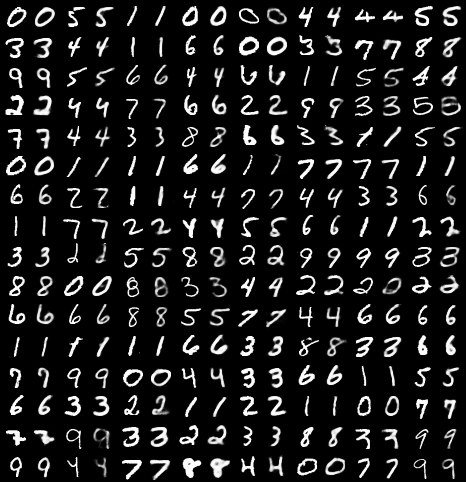 0 0 5 5 1 1 0 0 0 0 4 4 4 4 5 5
3 3 4 4 1 1 6 6 0 0 3 3 7 7 8 8
9 9 5 5 6 6 4 4 6 6 1 1 5 5 4 4
2 2 4 4 7 7 6 6 2 2 9 9 3 3 5 5
7 7 4 4 3 3 8 8 6 6 3 3 1 1 5 5
0 0 1 1 1 1 6 6 1 1 7 7 7 7 1 1
6 6 2 2 1 1 4 4 7 7 4 4 3 3 6 6
1 1 7 7 2 2 4 4 5 5 6 6 1 1 2 2
3 3 2 2 5 5 8 8 2 2 9 9 9 9 3 3
8 8 0 0 8 8 3 3 4 4 2 2 2 0 2 2
6 6 6 6 8 8 5 5 7 7 4 4 6 6 6 6
1 1 1 1 1 1 6 6 3 3 8 8 3 3 6 6
7 7 9 9 0 0 4 4 3 3 6 6 1 1 5 5
6 6 3 3 2 2 1 1 2 2 1 1 0 0 7 7
7 7 9 9 3 3 2 2 3 3 8 8 3 3 9 9
9 9 4 4 7 7 8 8 4 4 0 0 7 7 9 9